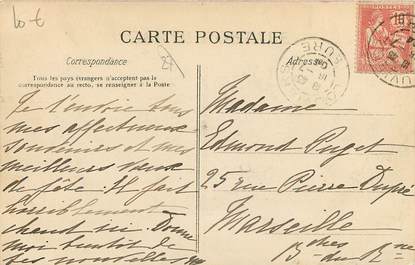 10-€
CARTE POSTALE
Correspondance
Adresse
Tous les pays étrangers n'acceptent pas la
correspondance au recto, se renseigner à la Poste
Je t'envoie tous
mes affectueux
souvenirs et mes
meilleurs vœux
de fête. Il fait
horriblement
chaud ici. Donne
moi bientôt de
tes nouvelles
Madame
Edmond Puget
25 rue Pierre Dupré
Marseille
Bches du Rne
EURE
10